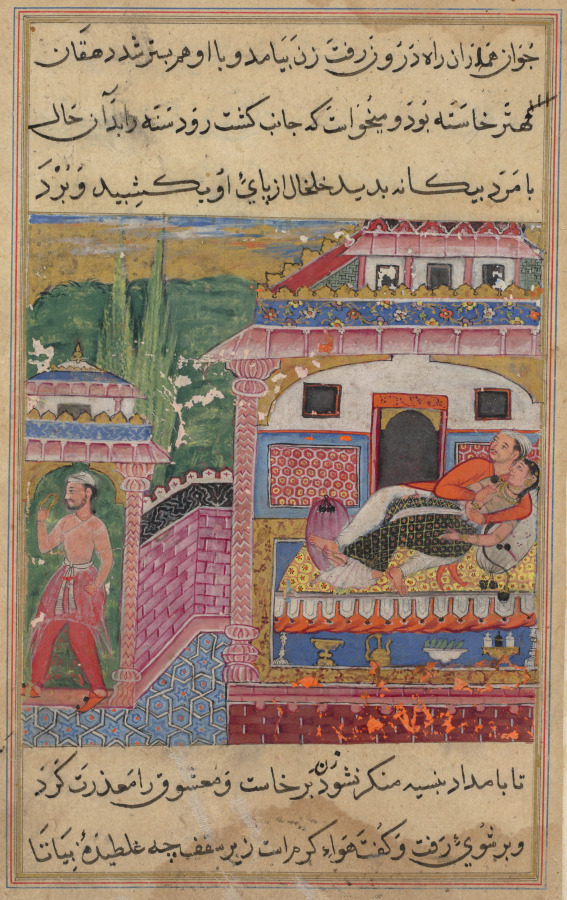 جوان هملاران راه درون رفت زن بیامد و با او همبستر شد دهقان
مهتر خاسته بود و میخواست که جانب کشت رود سته را بدآن حال
با مرد بیکانه بدید خلخال از پایٔ او بکشید و ببرد
تا بامداد بنسیه منکر نشود زن برخاست و معشوق را معذرت کرد
و بر شویٔ رفت و کفت هواء کرم است زیر سقف چه غلطیدهٔ بیا تا